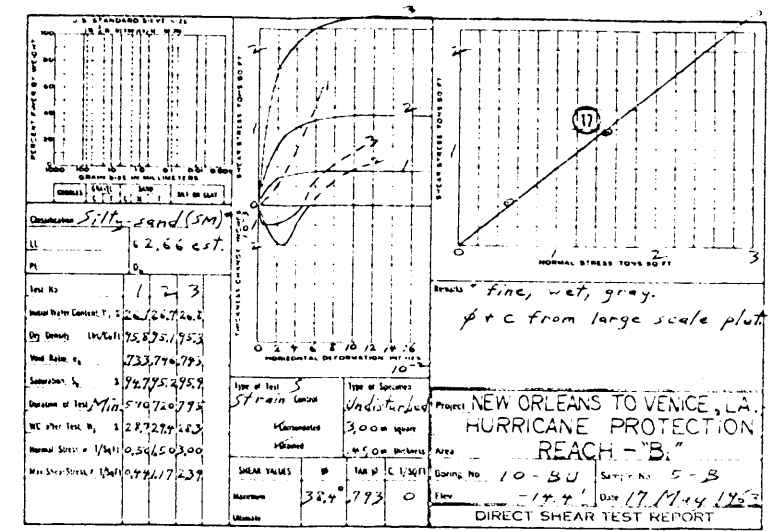 U.S. STANDARD SIEVE SIZE
PERCENT FINER BY WEIGHT
100
80
60
40
20
0
1000 100 10 1.0 0.1 0.01 0.001
GRAIN SIZE IN MILLIMETERS
COBBLES GRAVEL SAND SILT OR CLAY
Classification Silty-sand (SM)*
LL G 2.66 est.
PL
Test No 1 2 3
Initial Water Content, 26.1 26.7 26.8
Dry Density Lbs/CuFt 95.8 95.1 95.3
Void Ratio, e .733 .746 .743
Saturation, S % 94.7 95.2 95.9
Duration of Test, Min 570 720 795
WC after Test, % 28.7 29.4 28.3
Normal Stress T/SqFt 0.50 1.50 3.00
Max Shear Stress, T/SqFt 0.44 1.17 2.39
SHEAR STRESS TONS SQ FT
3
2
1
0
1
2
3
THICKNESS CHANGE INCHES
10-3
2
0 2 4 6 8 10 12 14 16
HORIZONTAL DEFORMATION INCHES
10-2
Type of Test S
Strain Control
Type of Specimen
Undisturbed
Consolidated
Drained
3.00 in square
.450 in thickness
SHEAR VALUES Φ TAN Φ C, T/SQFT
Maximum 38.4° .793 0
Ultimate
SHEAR STRESS TONS SQ FT
2
1
0
17
1 2 3
NORMAL STRESS TONS SQ FT
Remarks * fine, wet, gray.
φ + c from large scale plot
Project NEW ORLEANS TO VENICE, LA.
HURRICANE PROTECTION
Area REACH - "B1"
Boring No. 10-BU Sample No 5-B
Elev -14.4' Date 17 May 1963
DIRECT SHEAR TEST REPORT